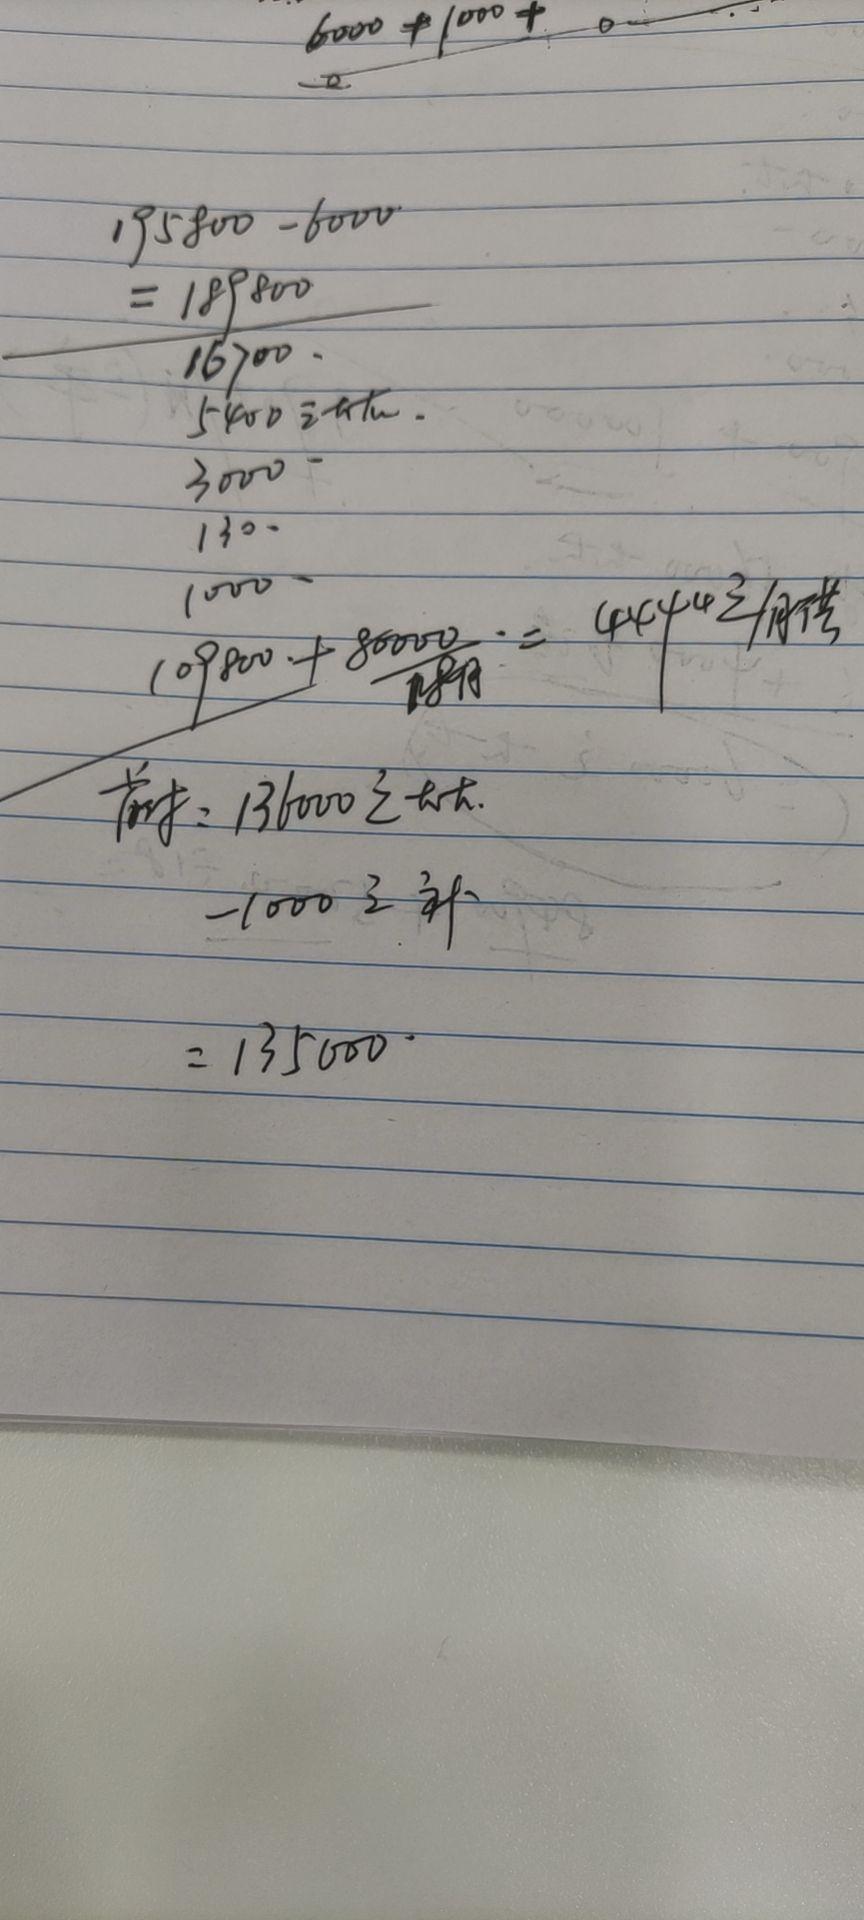 6000 + 1000 +
195800 - 6000
= 189800
16700.
5400
3000
130.
1000
109800 + 80000/18月 = 4444元/月供
= 136000元左右.
-1000元
= 135000.